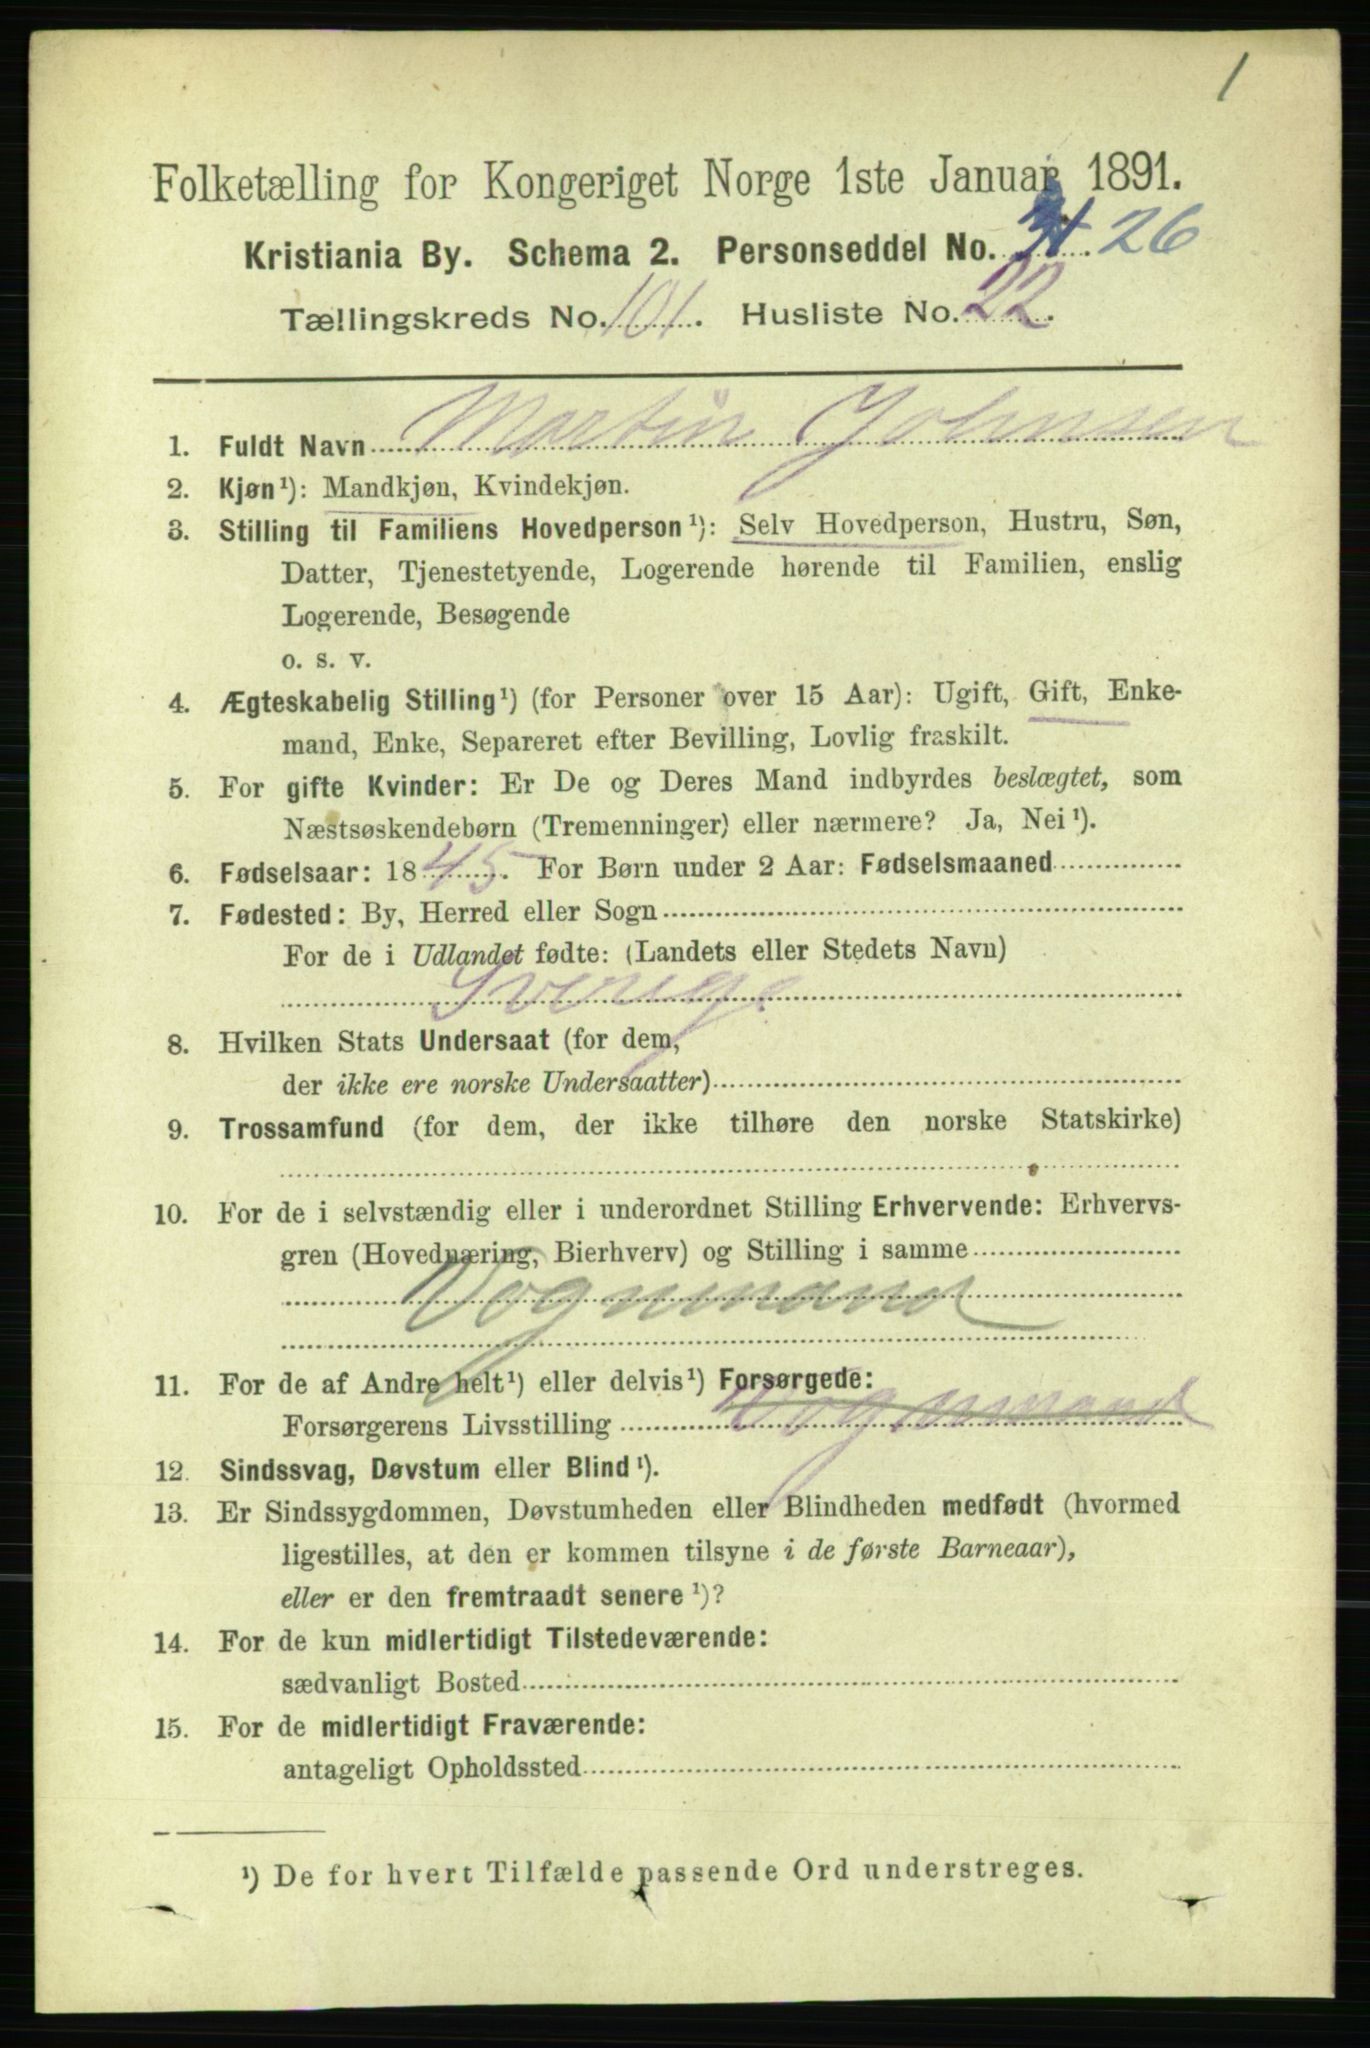 1
Folketælling for Kongeriget Norge 1ste Januar 1891.
Kristiania By. Schema 2. Personseddel No. 26
Tællingskreds No. 101. Husliste No. 22.
1. Fuldt Navn Martin Johnsen
2. Kjøn¹): Mandkjøn, Kvindekjøn.
3. Stilling til Familiens Hovedperson¹): Selv Hovedperson, Hustru, Søn,
Datter, Tjenestetyende, Logerende hørende til Familien, enslig
Logerende, Besøgende
o. s. v.
4. Ægteskabelig Stilling¹) (for Personer over 15 Aar): Ugift, Gift, Enke-
mand, Enke, Separeret efter Bevilling, Lovlig fraskilt.
5. For gifte Kvinder: Er De og Deres Mand indbyrdes beslægtet, som
Næstsøskendebørn (Tremenninger) eller nærmere? Ja, Nei¹).
6. Fødselsaar: 1845. For Børn under 2 Aar: Fødselsmaaned
7. Fødested: By, Herred eller Sogn
For de i Udlandet fødte: (Landets eller Stedets Navn)
Sverige
8. Hvilken Stats Undersaat (for dem,
der ikke ere norske Undersaatter)
9. Trossamfund (for dem, der ikke tilhøre den norske Statskirke)
10. For de i selvstændig eller i underordnet Stilling Erhvervende: Erhvervs-
gren (Hovednæring, Bierhverv) og Stilling i samme
Vognmand
11. For de af Andre helt¹) eller delvis¹) Forsørgede:
Forsørgerens Livsstilling Vognmand
12. Sindssvag, Døvstum eller Blind¹).
13. Er Sindssygdommen, Døvstumheden eller Blindheden medfødt (hvormed
ligestilles, at den er kommen tilsyne i de første Barneaar),
eller er den fremtraadt senere¹)?
14. For de kun midlertidigt Tilstedeværende:
sædvanligt Bosted
15. For de midlertidigt Fraværende:
antageligt Opholdssted
¹) De for hvert Tilfælde passende Ord understreges.